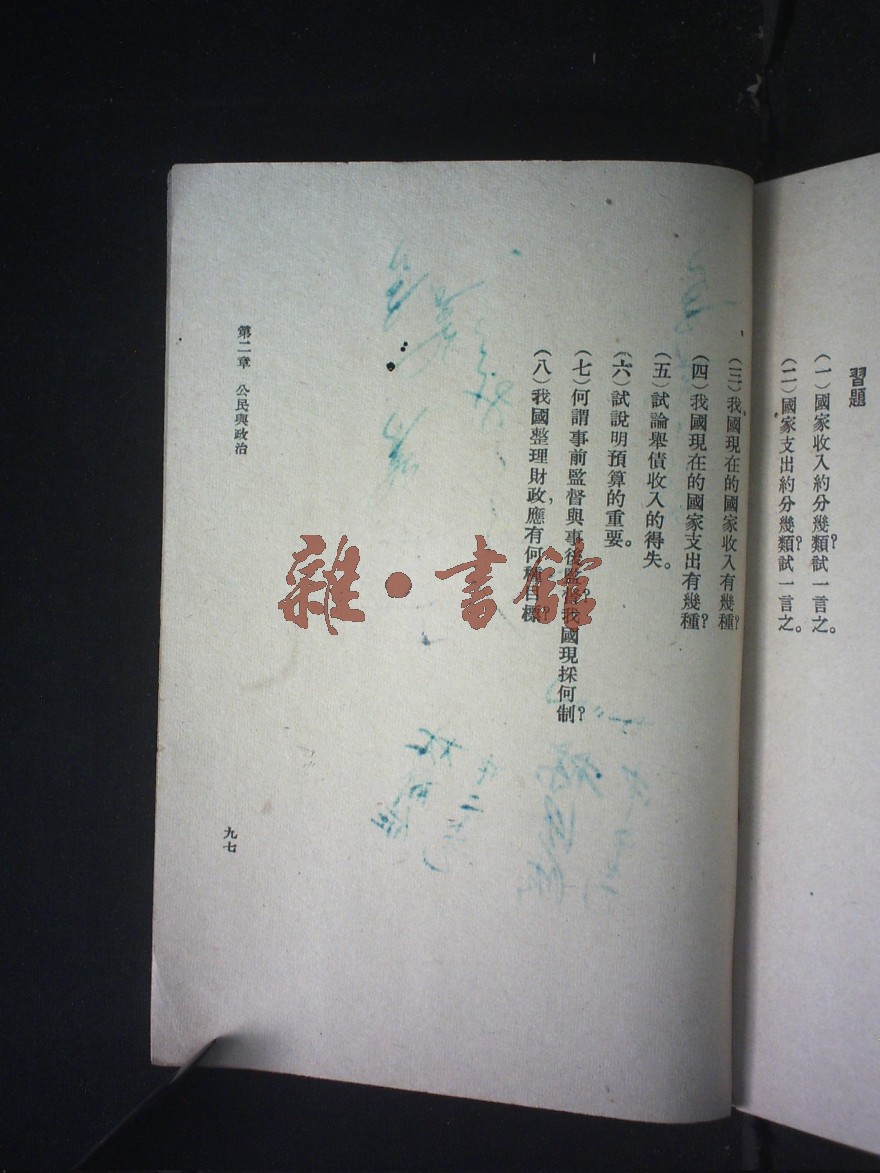 習題
（一）國家收入約分幾類？試一言之。
（二）國家支出約分幾類？試一言之。
（三）我國現在的國家收入有幾種？
（四）我國現在的國家支出有幾種？
（五）試論舉債收入的得失。
（六）試說明預算的重要。
（七）何謂事前監督與事後監督？我國現採何制？
（八）我國整理財政，應有何種目標？
第二章 公民與政治
九七
雜・書館